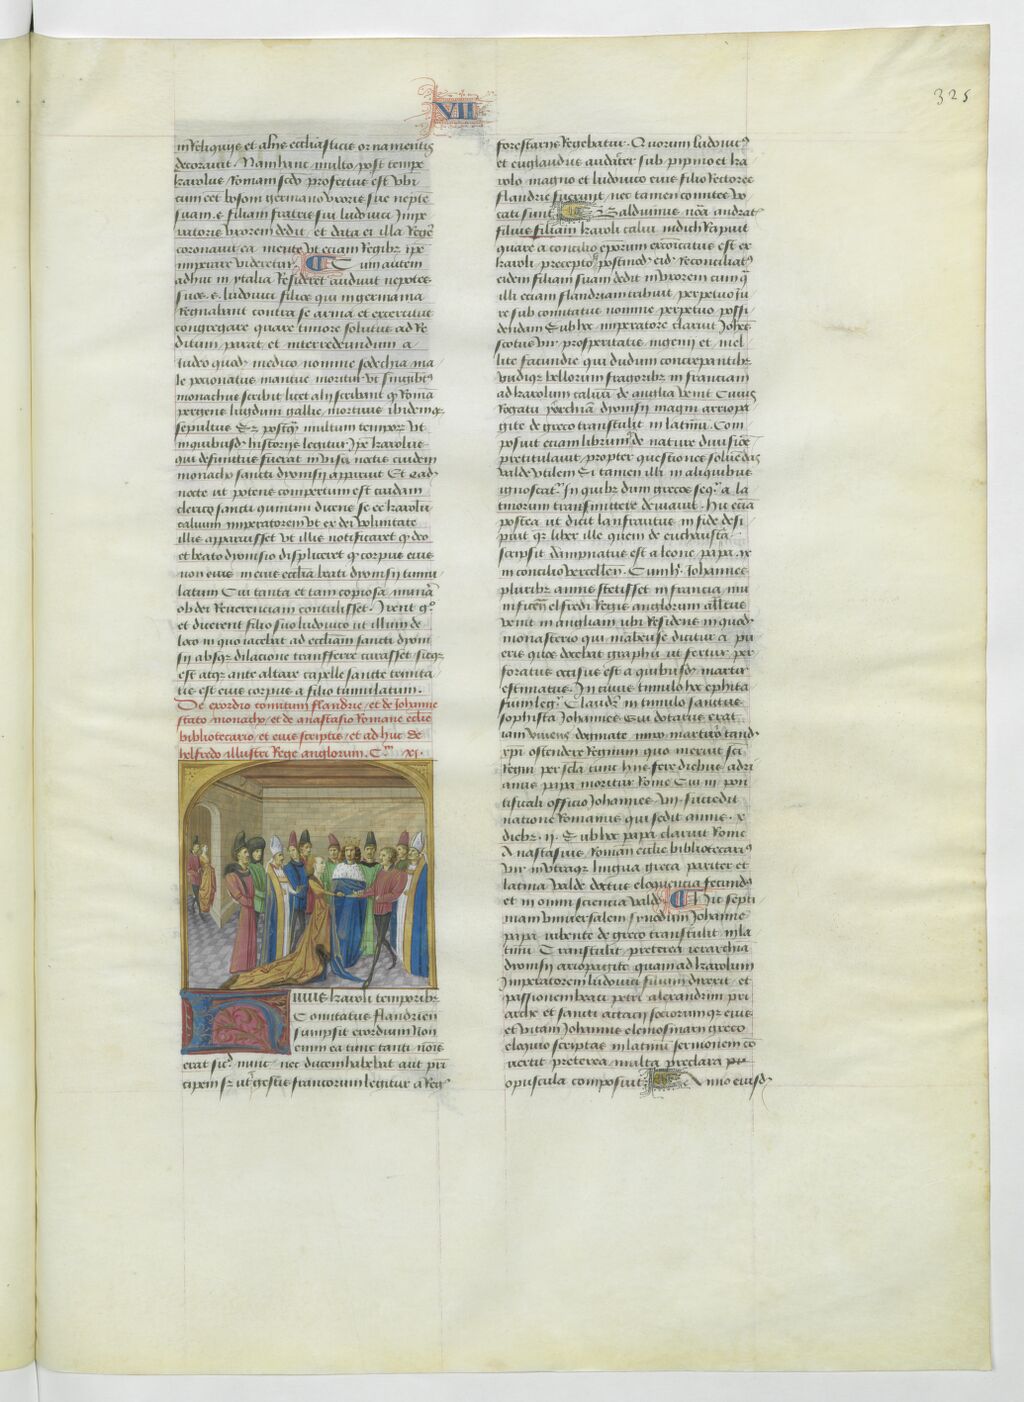 325
VII
in Reliquijs et alijs ecclesiasticis ornamentis
decoravit. Nam hanc multo post tempe
karolus Romam scdo profectus est Vbi
cum eet bosoni germano Vxoris sue nepte
suam .s. filiam fratris sui ludovici Impe
ratoris Vxorem dedit et data ei illa Rege
coronauit ea mente Vt eciam Regibz ipe
imperare videretur. Cum autem
adhuc in ytalia Resideret audiuit nepotes
suos .s. ludouici filios qui in germania
Regnabant contra se arma et exercitus
congregare quare timore solutus ad Re
ditum parat et inter redeundum a
iudeo quodam medico nomine sedechia ma
le pocionatus mantue moritur Vt singibts
monachus scribit licet alij scribant q Roma
pergens lugdum gallie mortuus ibidemq
sepultus Et postq multum tempor Vt
in quibusd historijs legitur Ipe karolus
qui defunctus fuerat in Visu noctis cuidem
monacho sancti dyonisij apparuit Et ead
nocte ut potens compertum est cuidam
clerico sancti quintini dicens se ee karolu
caluum imperatorem Vt ex dei voluntate
illis apparuisset ut illis notificaret q deo
et beato dyonisio displiceret q corpus eius
non eius in eius ecclia beati dyonisij tumu
latum Cui tanta et tam copiosa munera
ob dei Reuerenciam contulisset. Irent g
et dicerent filio suo ludouico ut illum de
loco in quo iacebat ad eccliam sancti dyoni
sij absq dilacione transferre curasset sicq
est atq ante altare capelle sancte trinita
tis est eius corpus a filio tumulatum.
De exordio comitum flandrie et de Iohanne
scoto monacho et de anastasio Romane eclie
bibliotecario et eius scriptis et ad huc de
helfredo illustri Rege anglorum. Cm xi.
uius karoli temporibz
Comitatus flandrien
sumpsit exordium Non
enim ea tunc tanti nois
erat sic nunc nec ducem habebat aut prin
cipem sz ut gestis francorum legitur a Reg
forestarijs Regebatur. Quorum ludouic
et englandus audater sub pipino et ka
rolo magno et ludouico eius filio Rectores
flandrie fuerunt nec tamen comites vo
cati sunt Balduinus
filius filiam karoli calui iudich Rapuit
quare a concilio eporum excoicatus est ex
karoli precepto postmod eid Reconciliat
eidem filiam suam dedit in Vxorem cum q
illi eciam flandriam tribuit perpetuo iu
re sub comitatus nomine perpetuo possi
dendam Sub hoc imperatore claruit Iohes
scotus vir prosperitatis ingenij et mel
lite facundie qui dudum concrepantibz
vndiqz bellorum fragoribz in franciam
ad karolum caluu de anglia venit Cuius
Rogatu yerchia dyonisij magni ariopa
gite de greco transtulit in latinu. Com
posuit eciam librum de nature diuisioe
pretitulauit propter questiones soluendas
valde vtilem Si tamen illi in aliquibus
ignoscat. In quibz dum grecos seq a la
tinorum transmittere deuiauit. hic ecia
postea ut dicit lanfrancus in fide desi
puit qz liber ille quem de eucharistia
scripsit dampnatus est a leone papa .ix
in concilio vercellen. Cum h Iohannes
pluribz annis stetisset in francia mu
nificen elfredi Regis anglorum allectus
venit in angliam ubi Residens in quod
monasterio qui mabeuse dicitur a pu
eris quos docebat graphijs ut fertur per
foratus occisus est a quibusd martir
estimatus. In cuius tumulo hoc ephita
fium leg. Claudit in tumulo sanctus
sophista Iohannes Qui dotatus erat
iam viuens dogmate miro martirio tand
xpi ostendere Regnum quo meruit sci
Regni per scla tunc hijs fere diebus adri
anus papa moritur Rome Cui in pon
tificali officio Iohannes VII succedit
natione Romanus qui sedit annis .x
diebz .ij. Sub hoc papa claruit Rome
Anastasius Romane ecclie bibliotecari
vir in vtraqz lingua greca pariter et
latina valde doctus eloquencia fecund
et in omni sciencia valde hic septi
mam vniuersalem synodum Iohanne
papa iubente de greco transtulit in la
tinu Transtulit preterea ierarchia
dyonisij ariopagite quam ad karolum
Imperatorem ludouici filium direxit et
passionem beati petri alexandrini pri
arche et sancti acacij sociorumqz eius
et vitam Iohannis elemosinarij greco
eloquio scriptas in latinu sermonem co
uertit preterea multa preclara
opuscula composuit Anno eiusd